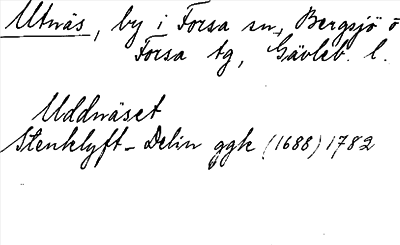 Utnäs, by i Forsa sn, Bergsjö o
Forsa tg, Gävleb. l.
Uddnäset
Stenklyft-Delin ggk (1688) 1782